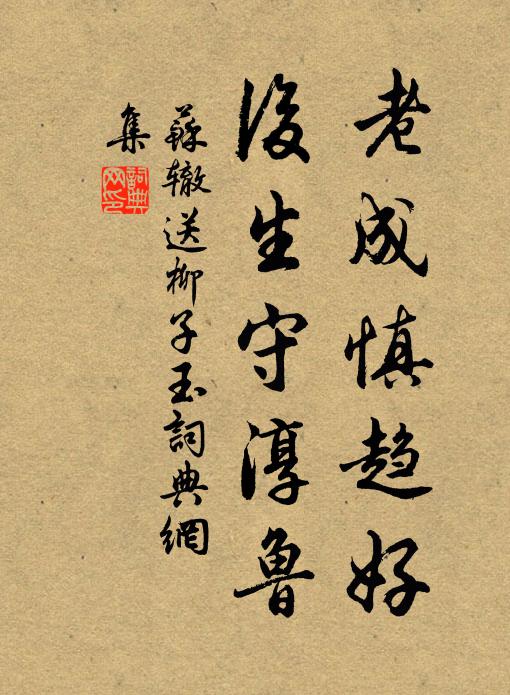 老成慎趋好
後生守淳鲁
蘇辙送柳子玉詞典網
集
詞典
网印